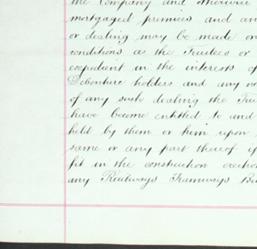 the Company and otherwise
mortgaged premises and an
or dealing may be made on
conditions as the Trustees or
expedient in the interests of
Debenture holders and any mo
of any such dealing the Tru
have become entitled to and
held by them or him upon
same or any part thereof of
fit in the construction erection
any Railways Tramways Bu